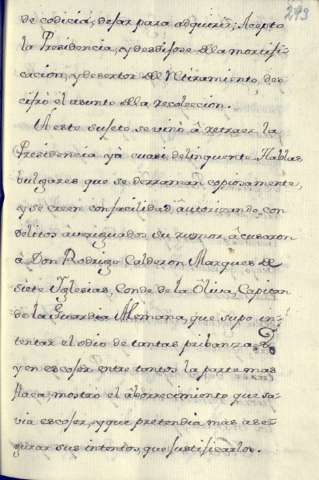 293
de codicia; dejar para adquirir; Acepto
la Presidencia, y desdijose dela mortifi-
cacion, y desertor del Retiramiento, des-
cifró el asunto dela recoleccion.
A este sujeto se vino â retraer la
Presidencia yâ cuasi delinquente. Hablas
bulgares que se derraman copiosamente,
y se creen con facilidad, autorizando con
delitos averiguados su rumor, acusaron
â Don Rodrigo Calderon Marques de
siete Yglesias, Conde de la Oliva, Capitan
de la Guardia Alemana, que supo in-
tentar el odio de tantas pribanzas,
y en escojer entre tantos la parte mas
flaca; mostró el aborrecimiento que sa-
via escojer, y que pretendia mas ase-
gurar sus intentos, que justificarlos.